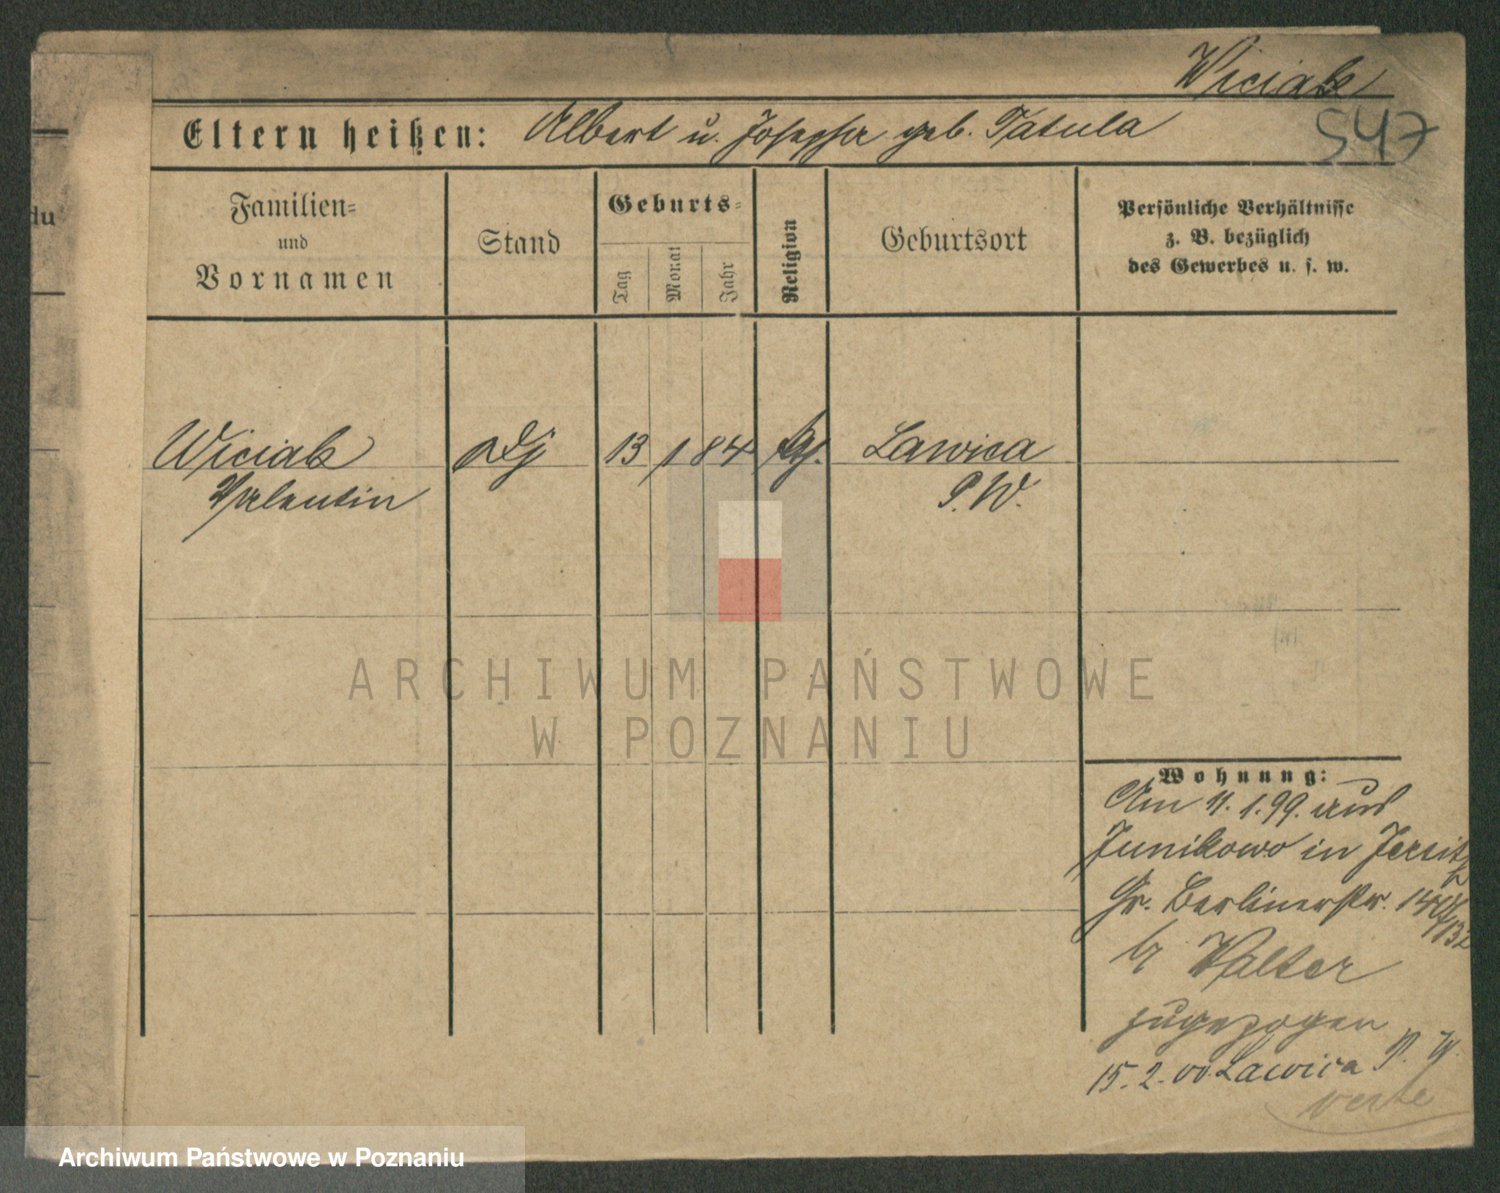 Wiciak
547
Eltern heißen: Albert u. Josepha geb. Tatula
du
Familien-
und
Vornamen
Stand
Geburts-
Tag
Monat
Jahr
Religion
Geburtsort
Persönliche Verhältnisse
z. B. bezüglich
des Gewerbes u. s. w.
Wiciak 13 1 84 Lawica
Valentin P. W.
ARCHIWUM PAŃSTWOWE
W POZNANIU
Wohnung:
Am 11. 1. 99. aus
Junikowo in Jersitz
Gr. Berlinerstr.
b/ Walter
zugezogen
15. 2. 00 Lawica P. W.
verte
Archiwum Państwowe w Poznaniu